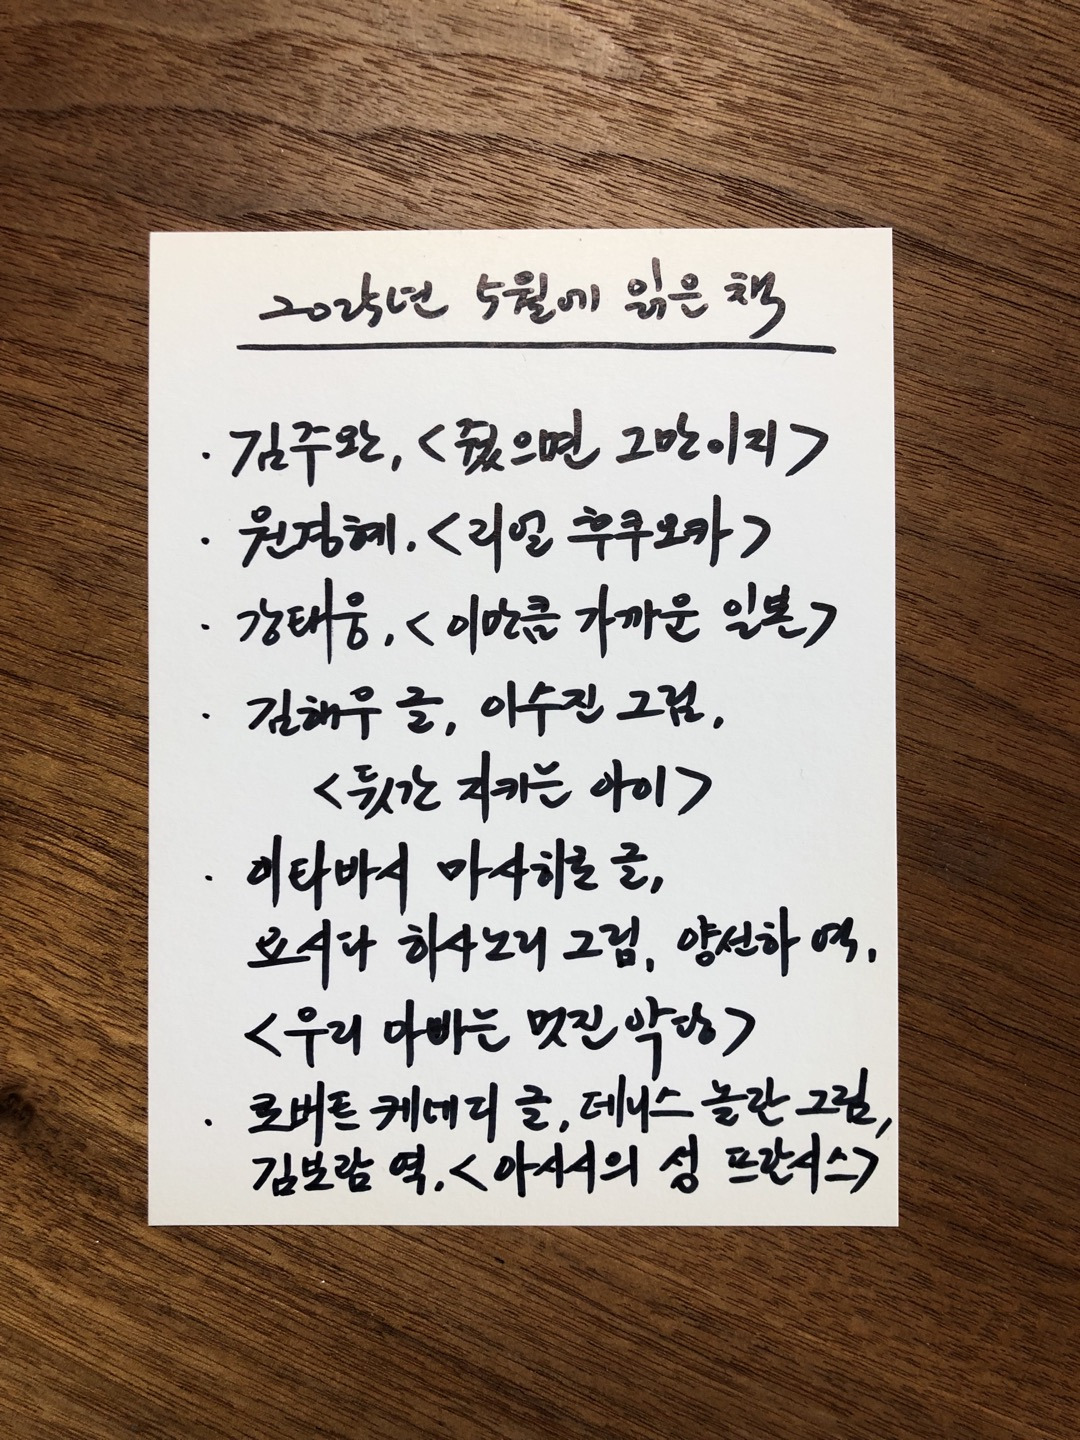 2025년 5월에 읽은 책
· 김주완, <줬으면 그만이지>
· 원경혜. <리얼 후쿠오카>
· 강태웅, <이만큼 가까운 일본>
· 김해우 글, 이수진 그림,
<뒷간 지키는 아이>
· 이타바시 마사히로 글,
요시다 히사노리 그림, 양선하 역,
<우리 아빠는 멋진 악당>
· 로버트 케네디 글, 데니스 놀란 그림,
김보람 역. <아시시의 성 프란시스>